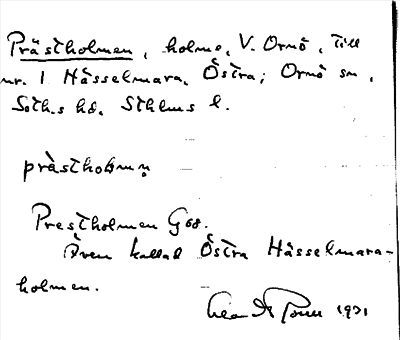 Prästholmen, holme, V. Ornö, till
nr. 1 Hässelmara, Östra; Ornö sn,
Soth.s hd. Sthlms l.
prästhoḷmeṇ
Prestholmen G 68.
Även kallad Östra Hässelmara-
holmen.
1931